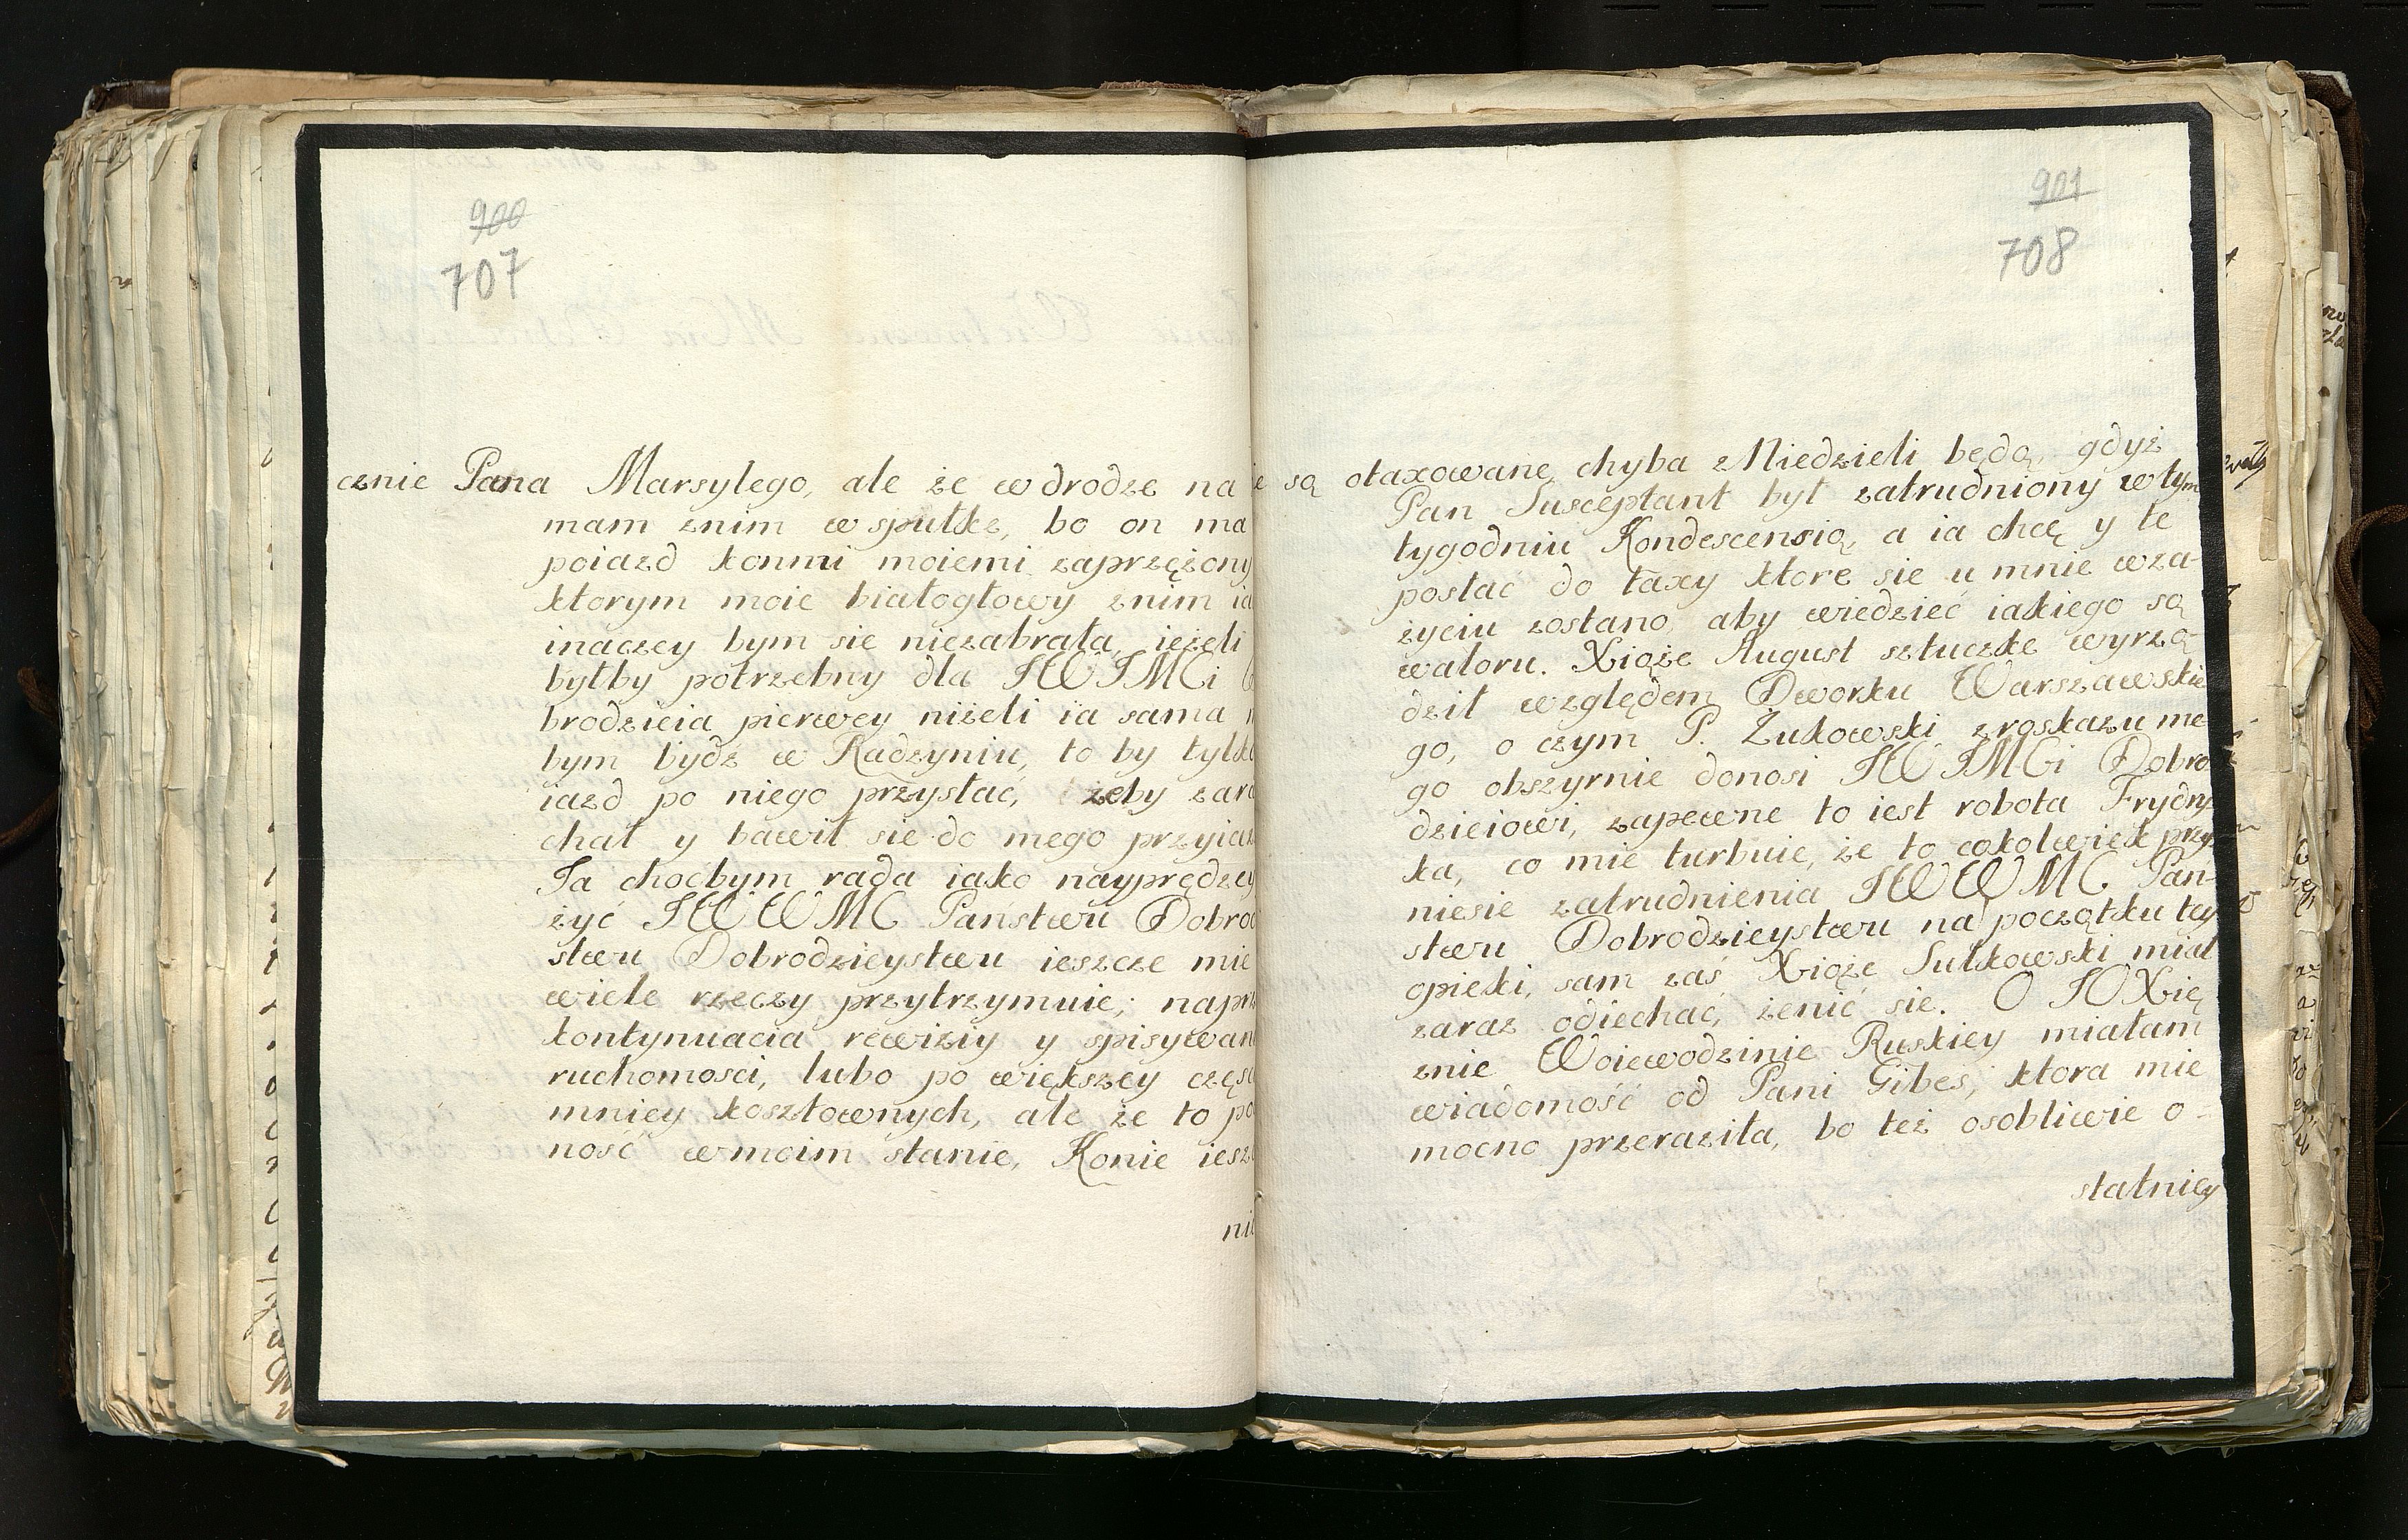 900
707
cznie Pana Marsylego, ale że w drodze na
mam znim w spułkę, bo on ma
poiazd konmi moiemi zaprzężony
ktorym moie białogłowy znim ia
inaczey bym sie niezabrała, ieżeli
byłby potrzebny dla JWJMCi
brodzieia pierwey niżeli ia sama
bym bydź w Radzyniu, to by tylko
iazd po niego przysłać, żeby zara
chał y bawił sie do mego przyiaz
Ja choćbym rada iako nayprędzey
żyć JWWMC Państwu Dobrod
stwu Dobrodzieystwu ieszcze mie
wiele rzeczy przytrzymuie; naprz
kontynuacia rewiziy y spisywan
ruchomosci, lubo po większey częsc
mniey kosztownych, ale że to po
ność wmoim stanie, Konie iesz
nie
901
708
ie są otaxowane, chyba zNiedzieli będą, gdyż
Pan Susceptant był zatrudniony wtym
tygodniu Kondescensią, a ia chcę y te
posłać do taxy ktore sie u mnie wza-
życiu zostano, aby wiedzieć iakiego są
waloru. Xiąże August sztuczkę wyrzą-
dził względem Dworku Warszawskie
go, o czym P. Żukowski zroskazu me
go obszyrnie donosi JWJMCi Dobro
dzieiowi, zapewne to iest robota Frydry-
ka, co mie turbuie, że to cokolwiek przy-
niesie zatrudnienia JWWMC Pań-
stwu Dobrodzieystwu na początku tey
opieki, sam zaś Xiąże Sułkowski miał
zaraz odiechać, żenić sie. O JOXię
żnie Woiewodzinie Ruskiey miałam
wiadomość od Pani Gibes, ktora mie
mocno przeraziła, bo też osobliwie o-
statniey